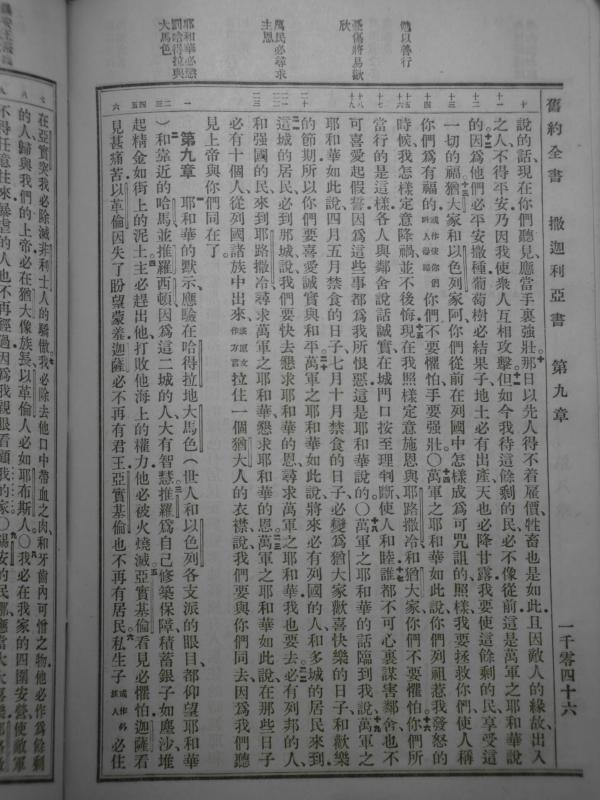 舊約全書 撒迦利亞書 第九章 一千零四十六
勉以善行
憂傷將易歡欣
萬民必尋求主恩
耶和華必懲罰哈得拉與大馬色
說的話現在你們聽見應當手裏強壯那日以先人得不着雇價牲畜也是如此且因敵人的緣故出入
之人不得平安乃因我使衆人互相攻擊但如今我待這餘剩的民必不像從前這是萬軍之耶和華說
的因爲他們必平安撒種葡萄樹必結果子地土必有出產天也必降甘露我要使這餘剩的民享受這
一切的福猶大家和以色列家阿你們從前在列國中怎樣成爲可咒詛的照樣我要拯救你們使人稱
你們爲有福的或作使你們叫人得福你們不要懼怕手要強壯○萬軍之耶和華如此說你們列祖惹我發怒的
時候我怎樣定意降禍並不後悔現在我照樣定意施恩與耶路撒冷和猶大家你們不要懼怕你們所
當行的是這樣各人與鄰舍說話誠實在城門口按至理判斷使人和睦誰都不可心裏謀害鄰舍也不
可喜愛起假誓因爲這些事都爲我所恨惡這是耶和華說的○萬軍之耶和華的話臨到我說萬軍之
耶和華如此說四月五月禁食的日子七月十月禁食的日子必變爲猶大家歡喜快樂的日子和歡樂
的節期所以你們要喜愛誠實與和平萬軍之耶和華如此說將來必有列國的人和多城的居民來到
這城的居民必到那城說我們要快去懇求耶和華的恩尋求萬軍之耶和華我也要去必有列邦的人
和强國的民來到耶路撒冷尋求萬軍之耶和華懇求耶和華的恩萬軍之耶和華如此說在那些日子
必有十個人從列國諸族中出來族原文作方言拉住一個猶大人的衣襟說我們要與你們同去因爲我們聽
見上帝與你們同在了
第九章 耶和華的默示應驗在哈得拉地大馬色(世人和以色列各支派的眼目都仰望耶和華
)和靠近的哈馬並推羅西頓因爲這二城的人大有智慧推羅爲自己修築保障積蓄銀子如塵沙堆
起精金如街上的泥土主必趕出他打敗他海上的權力他必被火燒滅亞實基倫看見必懼怕迦薩看
見甚痛苦以革倫因失了盼望蒙羞迦薩必不再有君王亞實基倫也不再有居民私生子或作外族人必住
在亞實突我必除滅非利士人的驕傲我必除去他口中帶血之肉和牙齒內可憎之物他必作爲餘剩
的人歸與我們的上帝必在猶大像族長以革倫人必如耶布斯人○我必在我家的四圍安營使敵軍
不得任意往來暴虐的人也不再經過因爲我親眼看顧我的家○錫安的民